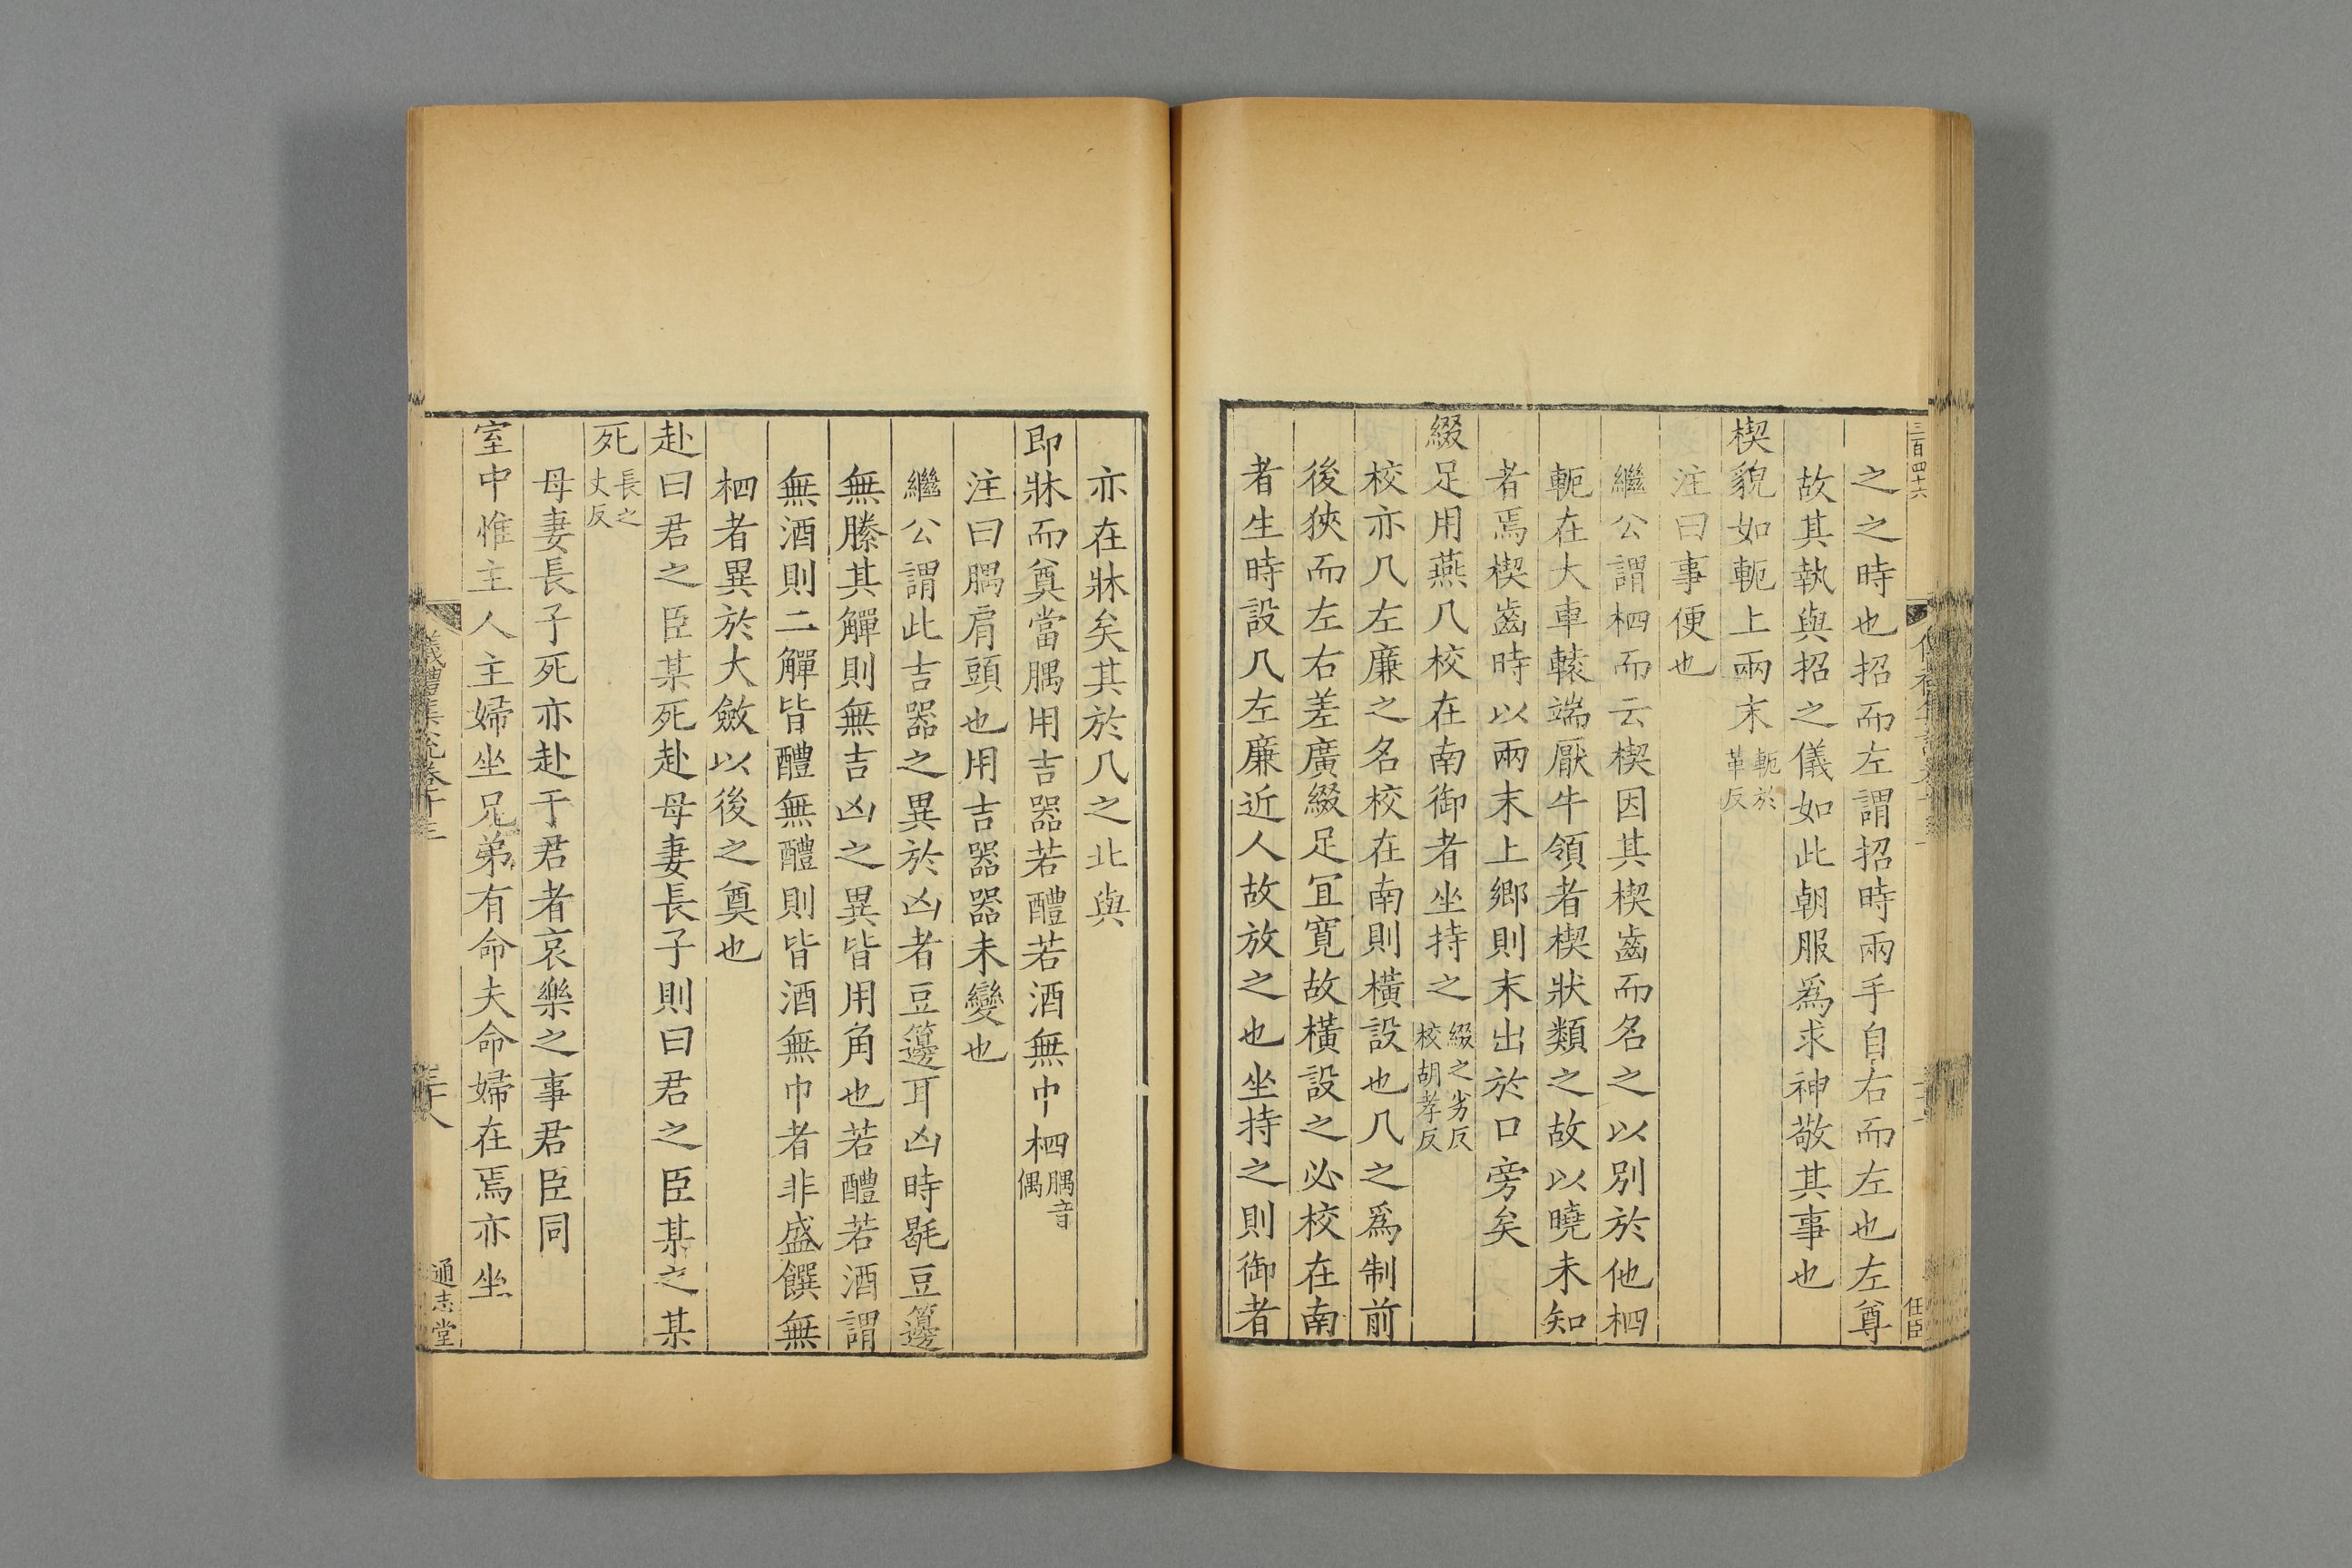 三百四十六
任臣
之之時也招而左謂招時兩手自右而左也左尊
故其執與招之儀如此朝服爲求神敬其事也
楔貌如軛上兩末軛於革反
注曰事便也
繼公謂柶而云楔因其楔齒而名之以別於他柶
軛在大車轅端厭牛領者楔狀類之故以曉未知
者焉楔齒時以兩末上鄉則末出於口旁矣
綴足用燕几校在南御者坐持之綴之劣反校胡孝反
校亦几左廉之名校在南則橫設也几之爲制前
後狹而左右差廣綴足冝寬故橫設之必校在南
者生時設几左廉近人故放之也坐持之則御者
亦在牀矣其於几之北與
即牀而奠當腢用吉器若醴若酒無巾柶腢音偶
注曰腢肩頭也用吉器器未變也
繼公謂此吉器之異於凶者豆籩耳凶時毼豆籩
無縢其觶則無吉凶之異皆用角也若醴若酒謂
無酒則二觶皆醴無醴則皆酒無巾者非盛饌無
柶者異於大斂以後之奠也
赴曰君之臣某死赴母妻長子則曰君之臣某之某
死長之丈反
母妻長子死亦赴于君者哀樂之事君臣同
室中惟主人主婦坐兄弟有命夫命婦在焉亦坐
儀禮集說卷十三
三十八
通志堂